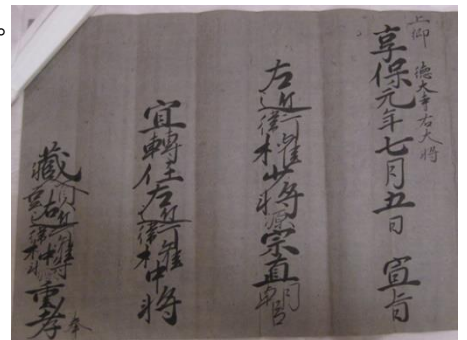 上卿 德大寺右大将
享保元年七月五日 宣旨
左近衛權少将源宗直朝臣
宜轉任左近衛權中将
藏人頭右近衛權中将重孝奉